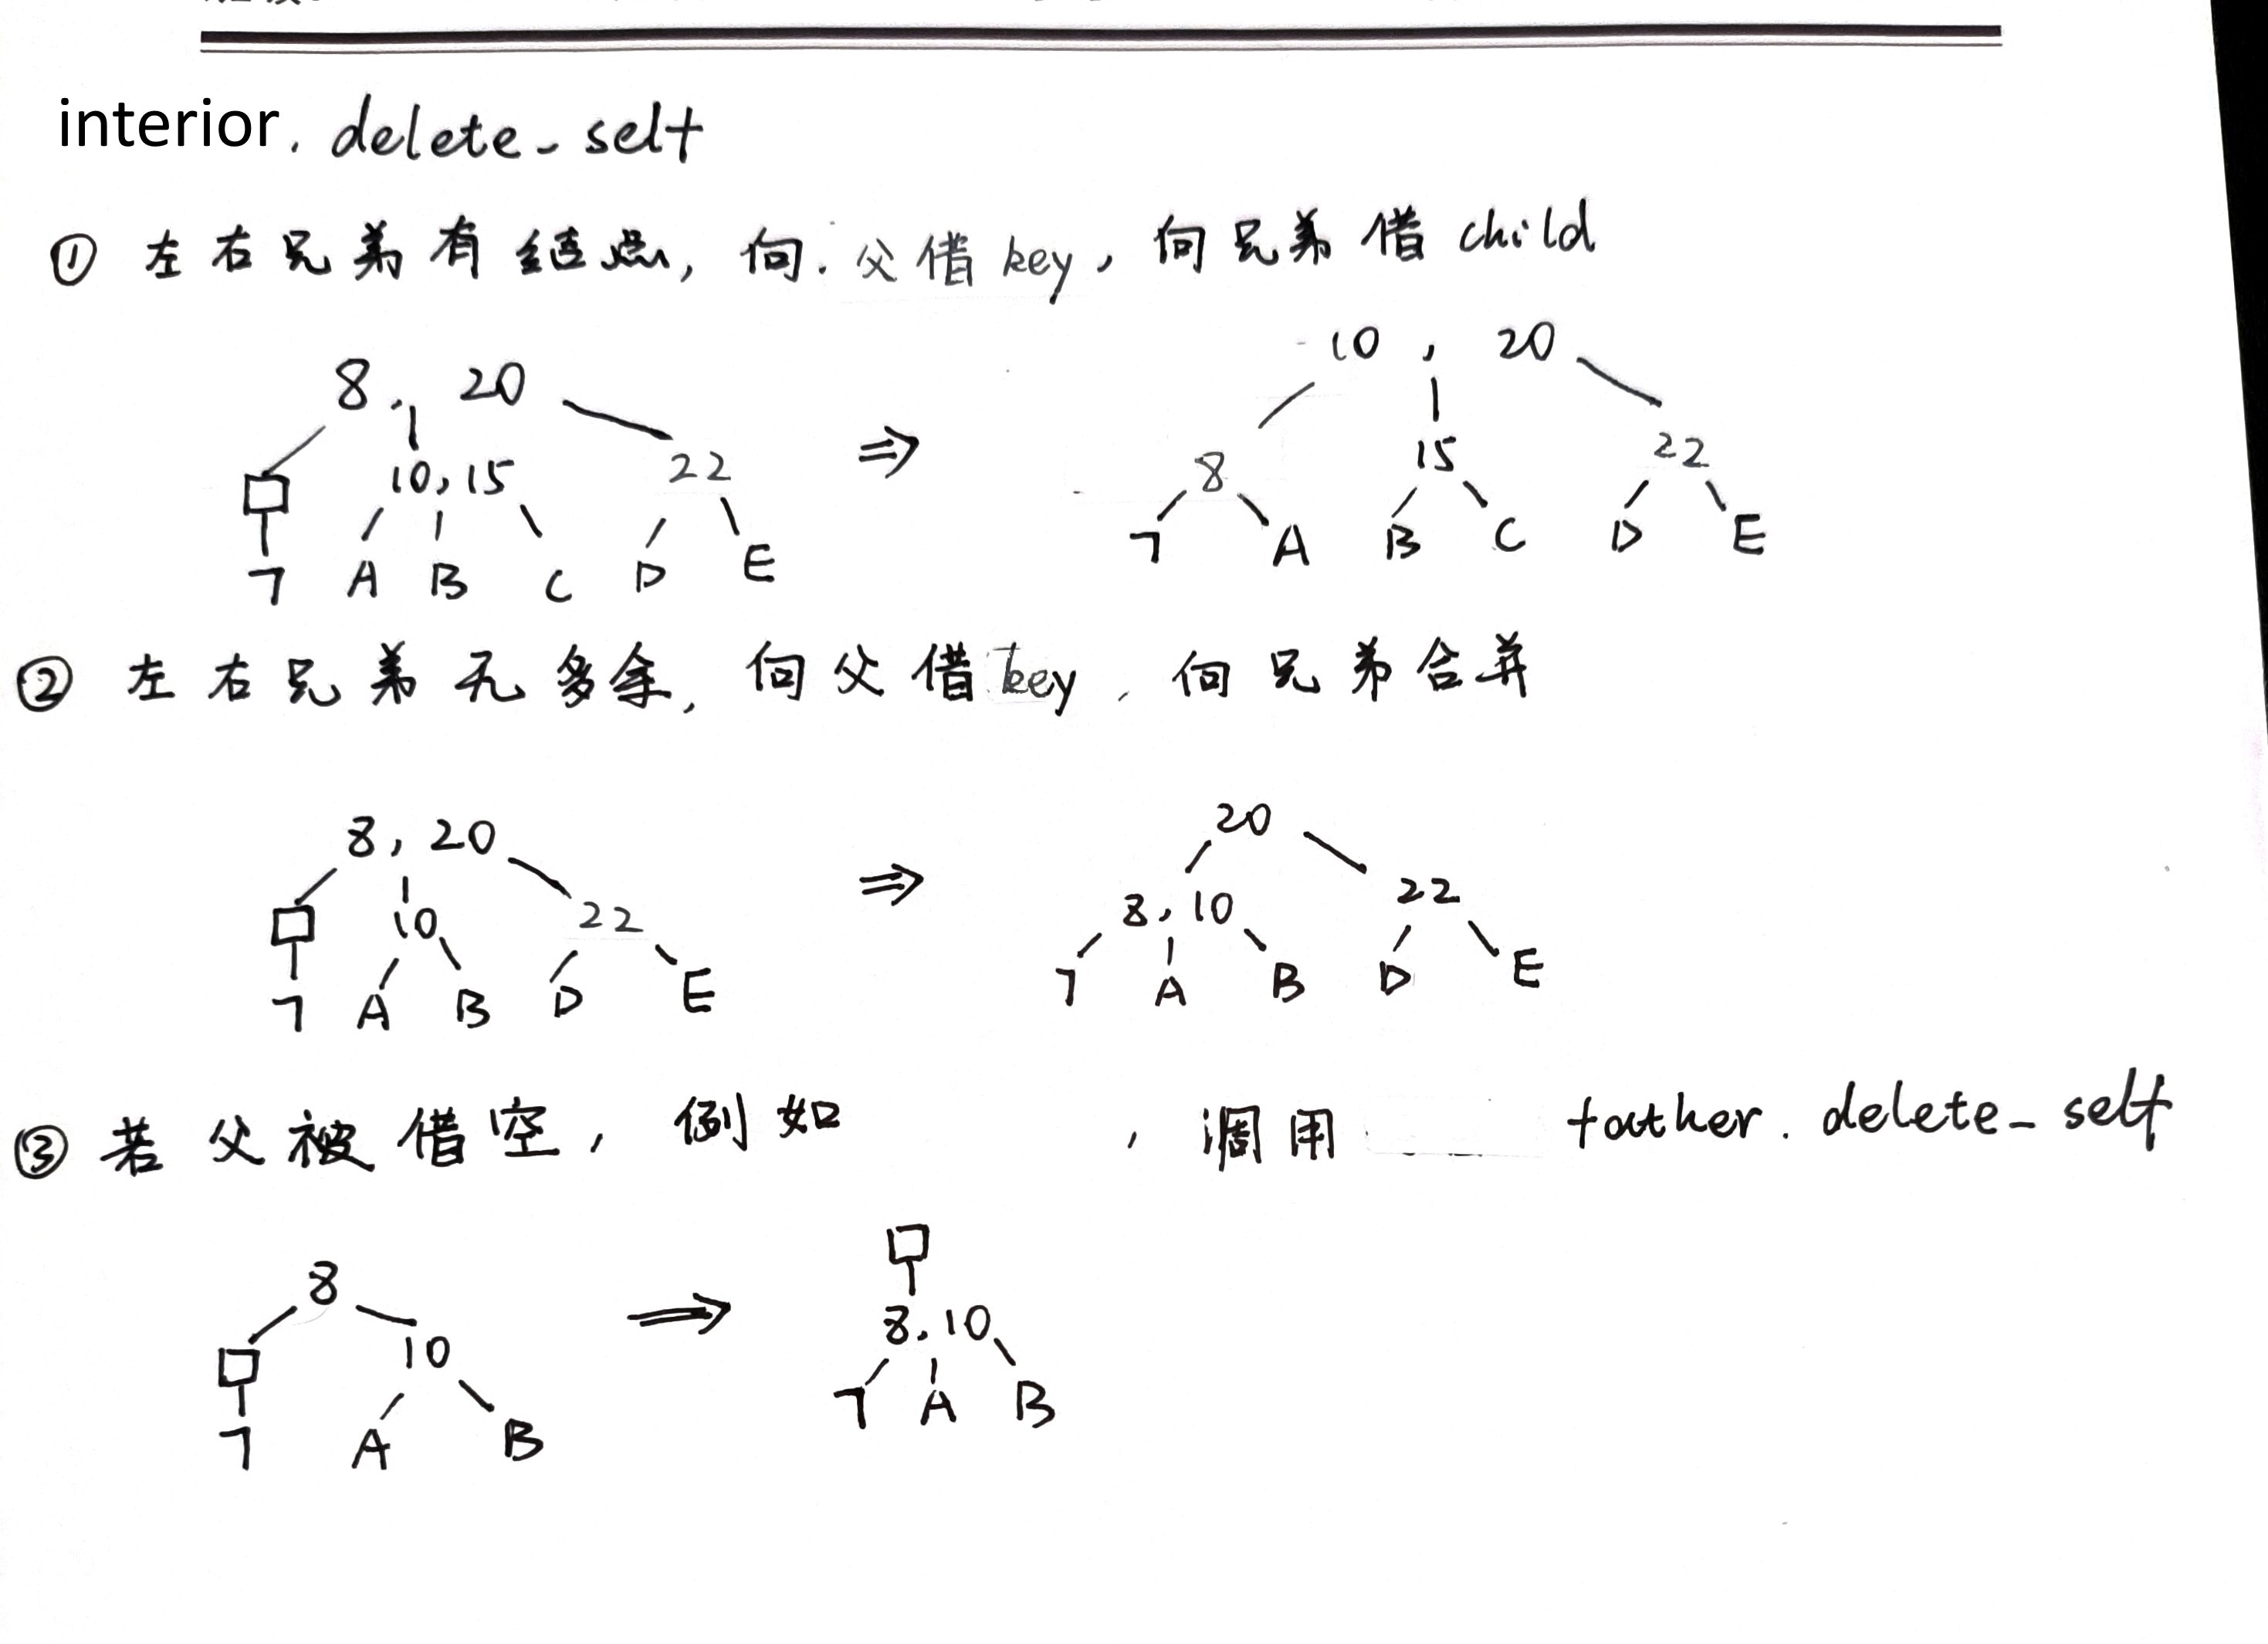 interior. delete_self
① 左右兄弟有结点, 向父借key, 向兄弟借child
8, 20
10, 15 22
7 A B C D E
⇒
10, 20
8 15 22
7 A B C D E
② 左右兄弟无多余, 向父借key, 向兄弟合并
8, 20
10 22
7 A B D E
⇒
20
8, 10 22
7 A B D E
③ 若父被借空, 例如 , 调用 father. delete_self
8
10
7 A B
⇒
8, 10
7 A B